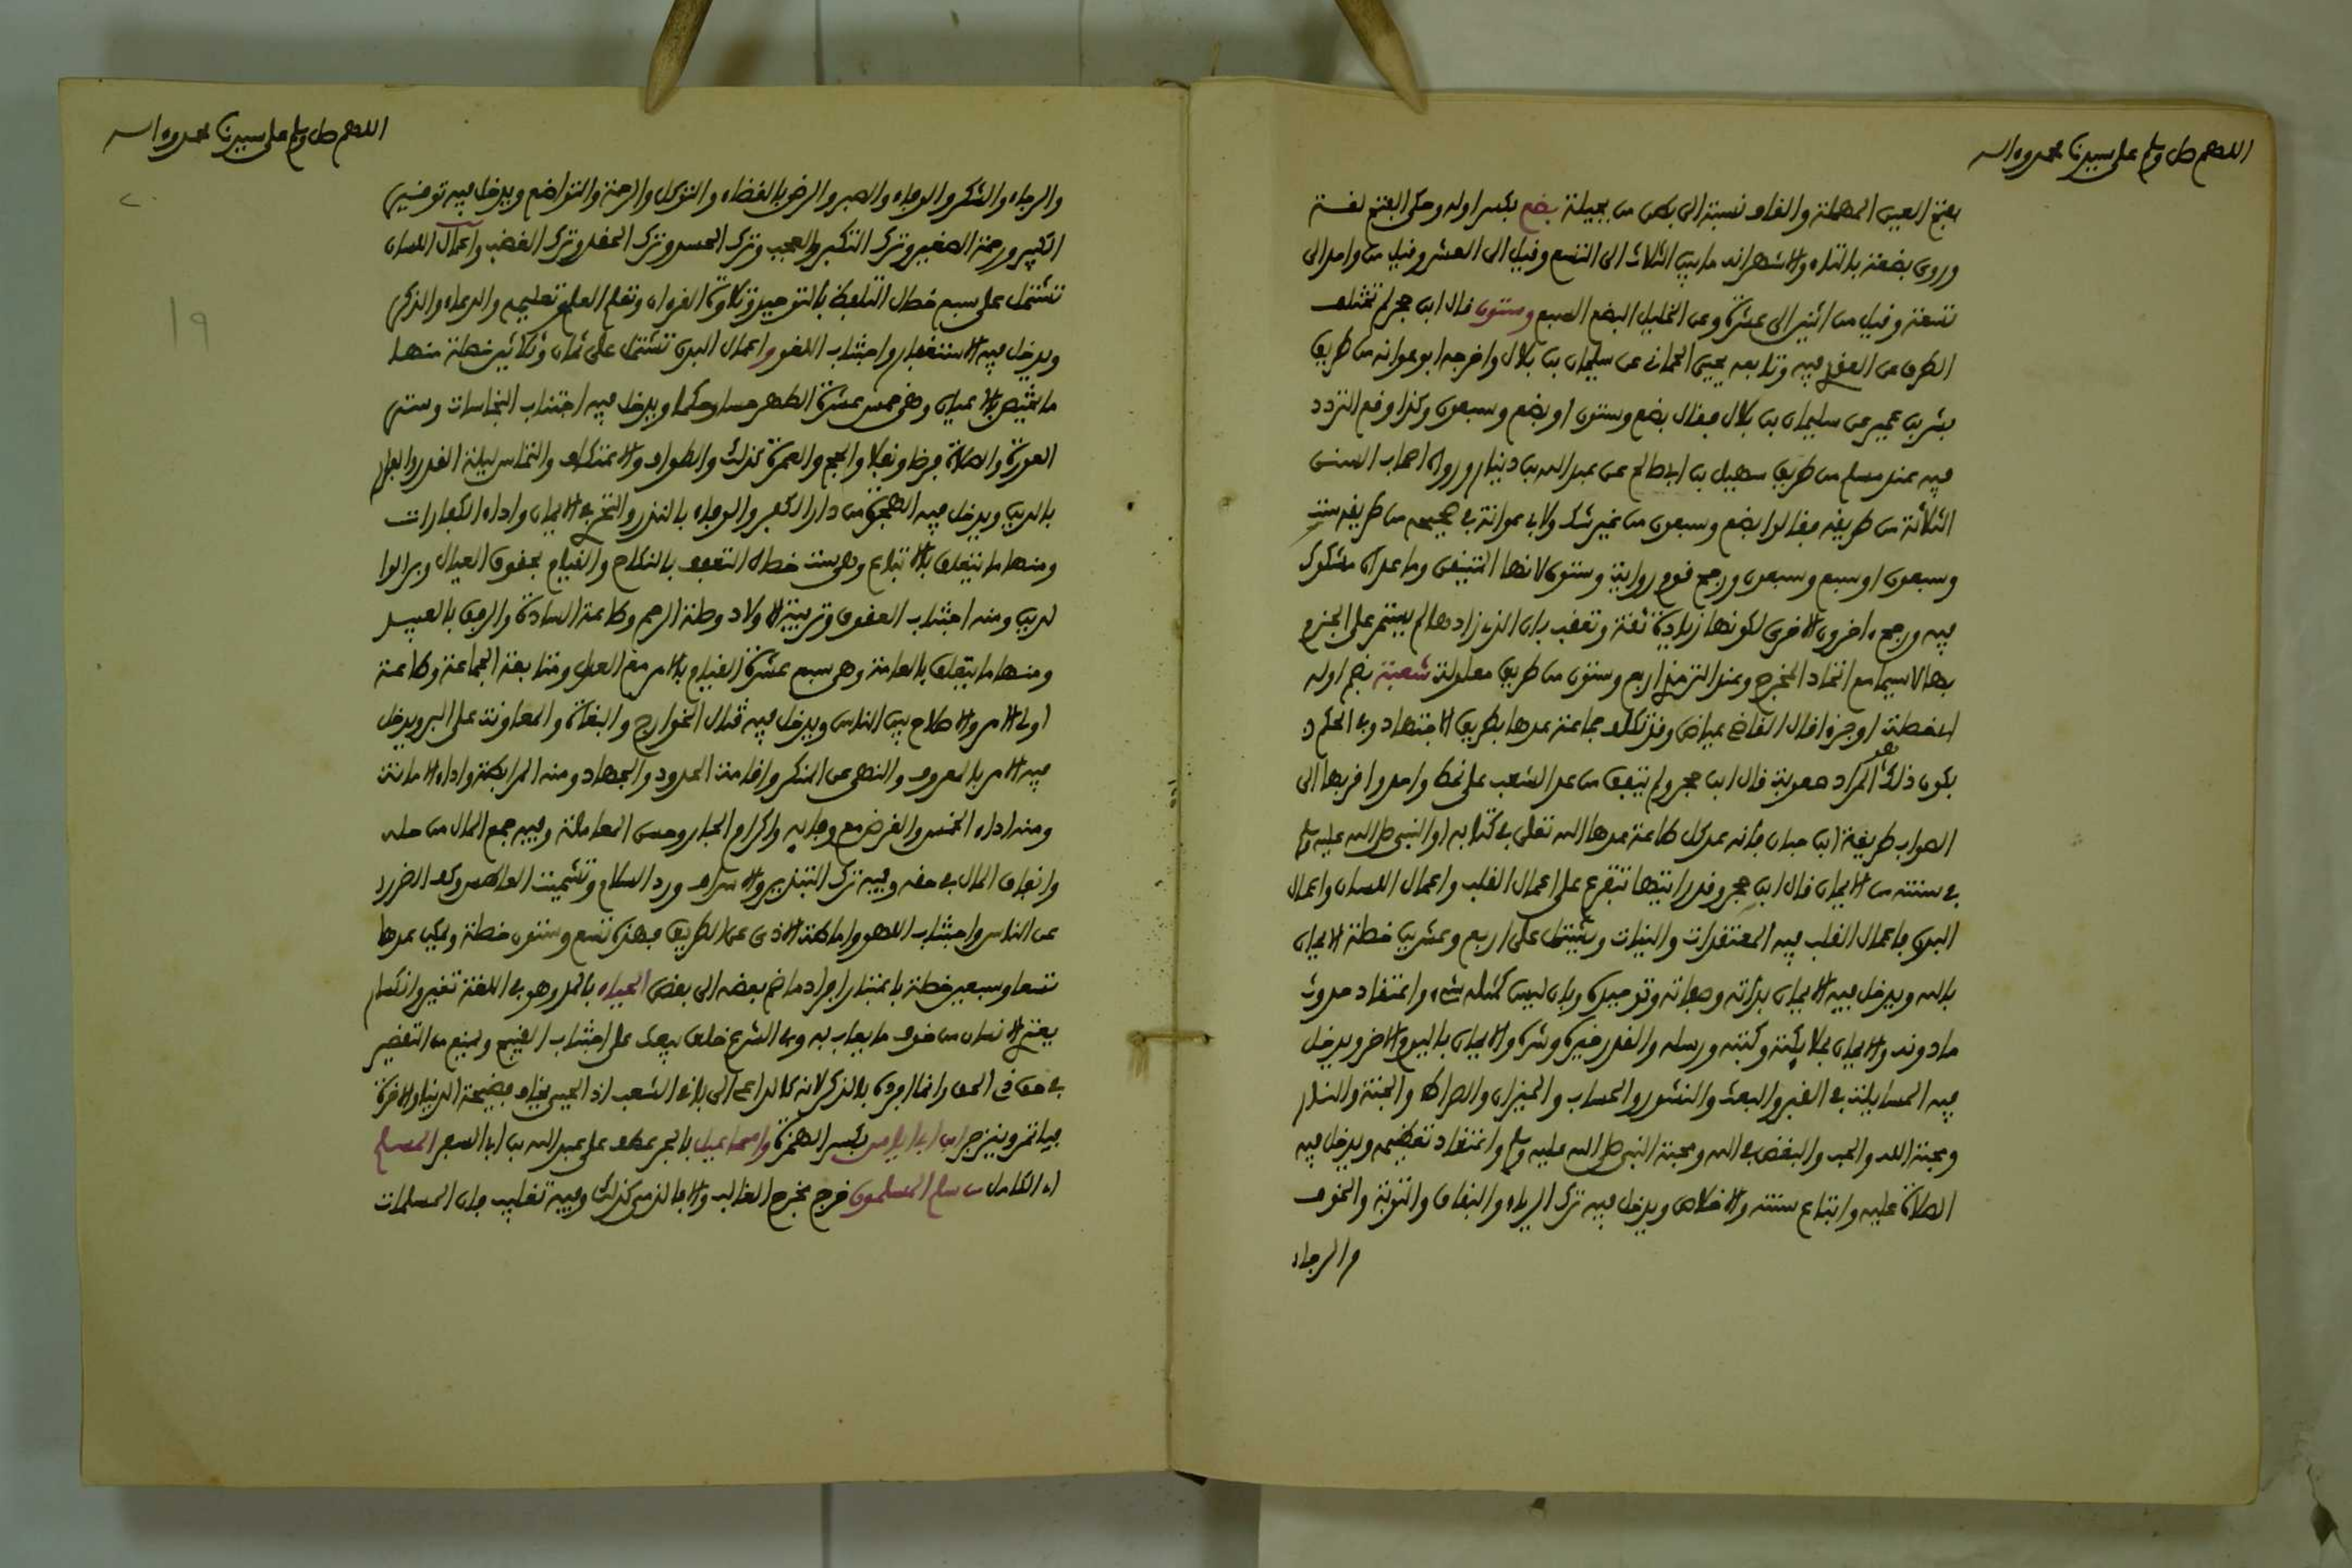 اللهم صل وسلم على سيدنا محمد وءاله
بفتح العين المهملة والقاف نسبة الى بطن من بجيلة بضع بكسر اوله وحكى الفتح لغة
وروى بضعة بالتاء والاشهر انه ما بين الثلاث الى التسع وقيل الى العشر وقيل من واحد الى
تسعة وقيل من اثنين الى عشرة وعن الخليل البضع السبع وستون قال ابن حجر لم تختلف
الطرق عن العقدي فيه وتابعه يحيى الحماني عن سليمان بن بلال واخرجه ابو عوانه من طريق
بشر بن عمير عن سليمان بن بلال فقال بضع وستون او بضع وسبعون وكذا وقع التردد
فيه عند مسلم من طريق سهيل بن ابي صالح عن عبد الله بن دينار ورواه اصحاب السنن
الثلاثة من طريقه فقالوا بضع وسبعون من غير شك ولابي عوانة في صحيحه من طريقه ست
وسبعون او سبع وسبعون ورجح قوم رواية وستون لانها المتيقن وما عداه مشكوك
فيه ورجح ءاخرون الاخرى لكونها زيادة ثقة وتعقب بان الذي زادها لم يستمر على الجزم
بها لا سيما مع اتحاد المخرج وعند الترمذي اربع وستون من طريق معلولة شعبة بضم اوله
اي خصلة او جزء قال القاضي عياض وقد تكلف جماعة عدها بطريق الاجتهاد وفي الحكم
بكون ذلك هو المراد صعوبة قال ابن حجر ولم يتفق من عد الشعب على نمط واحد واقربها الى
الصواب طريقة ابن حبان فانه عد كل طاعة عدها الله تعلى في كتابه او النبي صلى الله عليه وسلم
في سنته من الايمان قال ابن حجر وقد رايتها تتفرع على اعمال القلب واعمال اللسان واعمال
البدن فاعمال القلب فيه المعتقدات والنيات وتشتمل على اربع وعشرين خصلة الايمان
بالله ويدخل فيه الايمان بذاته وصفاته وتوحيده وبان ليس كمثله شيء واعتقاد حدوث
ما دونه والايمان بملايكته وكتبه ورسله والقدر خيره وشره والايمان باليوم الاخر ويدخل
فيه المسايلة في القبر والبعث والنشور والحساب والميزان والصراط والجنة والنار
ومحبة الله والحب والبغض في الله ومحبة النبي صلى الله عليه وسلم واعتقاد تعظيمه ويدخل فيه
الصلاة عليه واتباع سنته والاخلاص ويدخل فيه ترك الرياء والنفاق والتوبة والخوف
والرجاء
اللهم صل وسلم على سيدنا محمد وءاله
والرجاء والشكر والوفاء والصبر والرضى بالقضاء والتوكل والرحمة والتواضع ويدخل فيه توقير
الكبير ورحمة الصغير وترك التكبر والعجب وترك الحسد وترك الحقد وترك الغضب واعمال اللسان
تشتمل على سبع خصال التلفظ بالتوحيد وتلاوة القرءان وتعلم العلم وتعليمه والدعاء والذكر
ويدخل فيه الاستغفار واجتناب اللغو واعمال البدن تشتمل على ثمان وثلاثين خصلة منها
ما يختص بالاعيان وهي خمس عشرة التطهر حسا وحكما ويدخل فيه اجتناب النجاسات وستر
العورة والصلاة فرضا ونفلا والحج والعمرة كذلك والطواف والاعتكاف والتماس ليلة القدر والفرار
بالدين ويدخل فيه الهجرة من دار الكفر والوفاء بالنذر والتحري في الايمان واداء الكفارات
ومنها ما يتعلق بالاتباع وهي ست خصال التعفف بالنكاح والقيام بحقوق العيال وبر الوا
لدين ومنه اجتناب العقوق وتربية الاولاد وصلة الرحم وطاعة السادة والرفق بالعبيد
ومنها ما يتعلق بالعامة وهي سبع عشرة القيام بالامر مع العدل ومتابعة الجماعة وطاعة
اولي الامر والاصلاح بين الناس ويدخل فيه قتال الخوارج والبغاة والمعاونة على البر ويدخل
فيه الامر بالمعروف والنهي عن المنكر واقامة الحدود والجهاد ومنه المرابطة واداء الامانة
ومنه اداء الخمس والقرض مع وفايه واكرام الجار وحسن المعاملة وفيه جمع المال من حله
وانفاق المال في حقه وفيه ترك التبذير والاسراف ورد السلام وتشميت العاطس وكف الضرر
عن الناس واجتناب اللهو واماطة الاذى عن الطريق فهذه تسع وستون خصلة ويمكن عدها
تسعا وسبعين خصلة باعتبار افراد ما ضم بعضه الى بعض الحياء بالمد وهو في اللغة تغير وانكسار
يعتري الانسان من خوف ما يعاب به وفي الشرع خلق يبعث على اجتناب القبيح ويمنع من التقصير
في حق ذي الحق وانما افرده بالذكر لانه كالداعي الى باقي الشعب اذ الحيي يخاف فضيحة الدنيا والاخرة
فياتمر وينزجر ابن ابي اياس بكسر الهمزة واسماعيل بالجر عطف على عبد الله بن ابي السفر المسلم
اي الكامل من سلم المسلمون خرج مخرج الغالب والا فالذمي كذلك وفيه تغليب فان المسلمات
٢٠
١٩